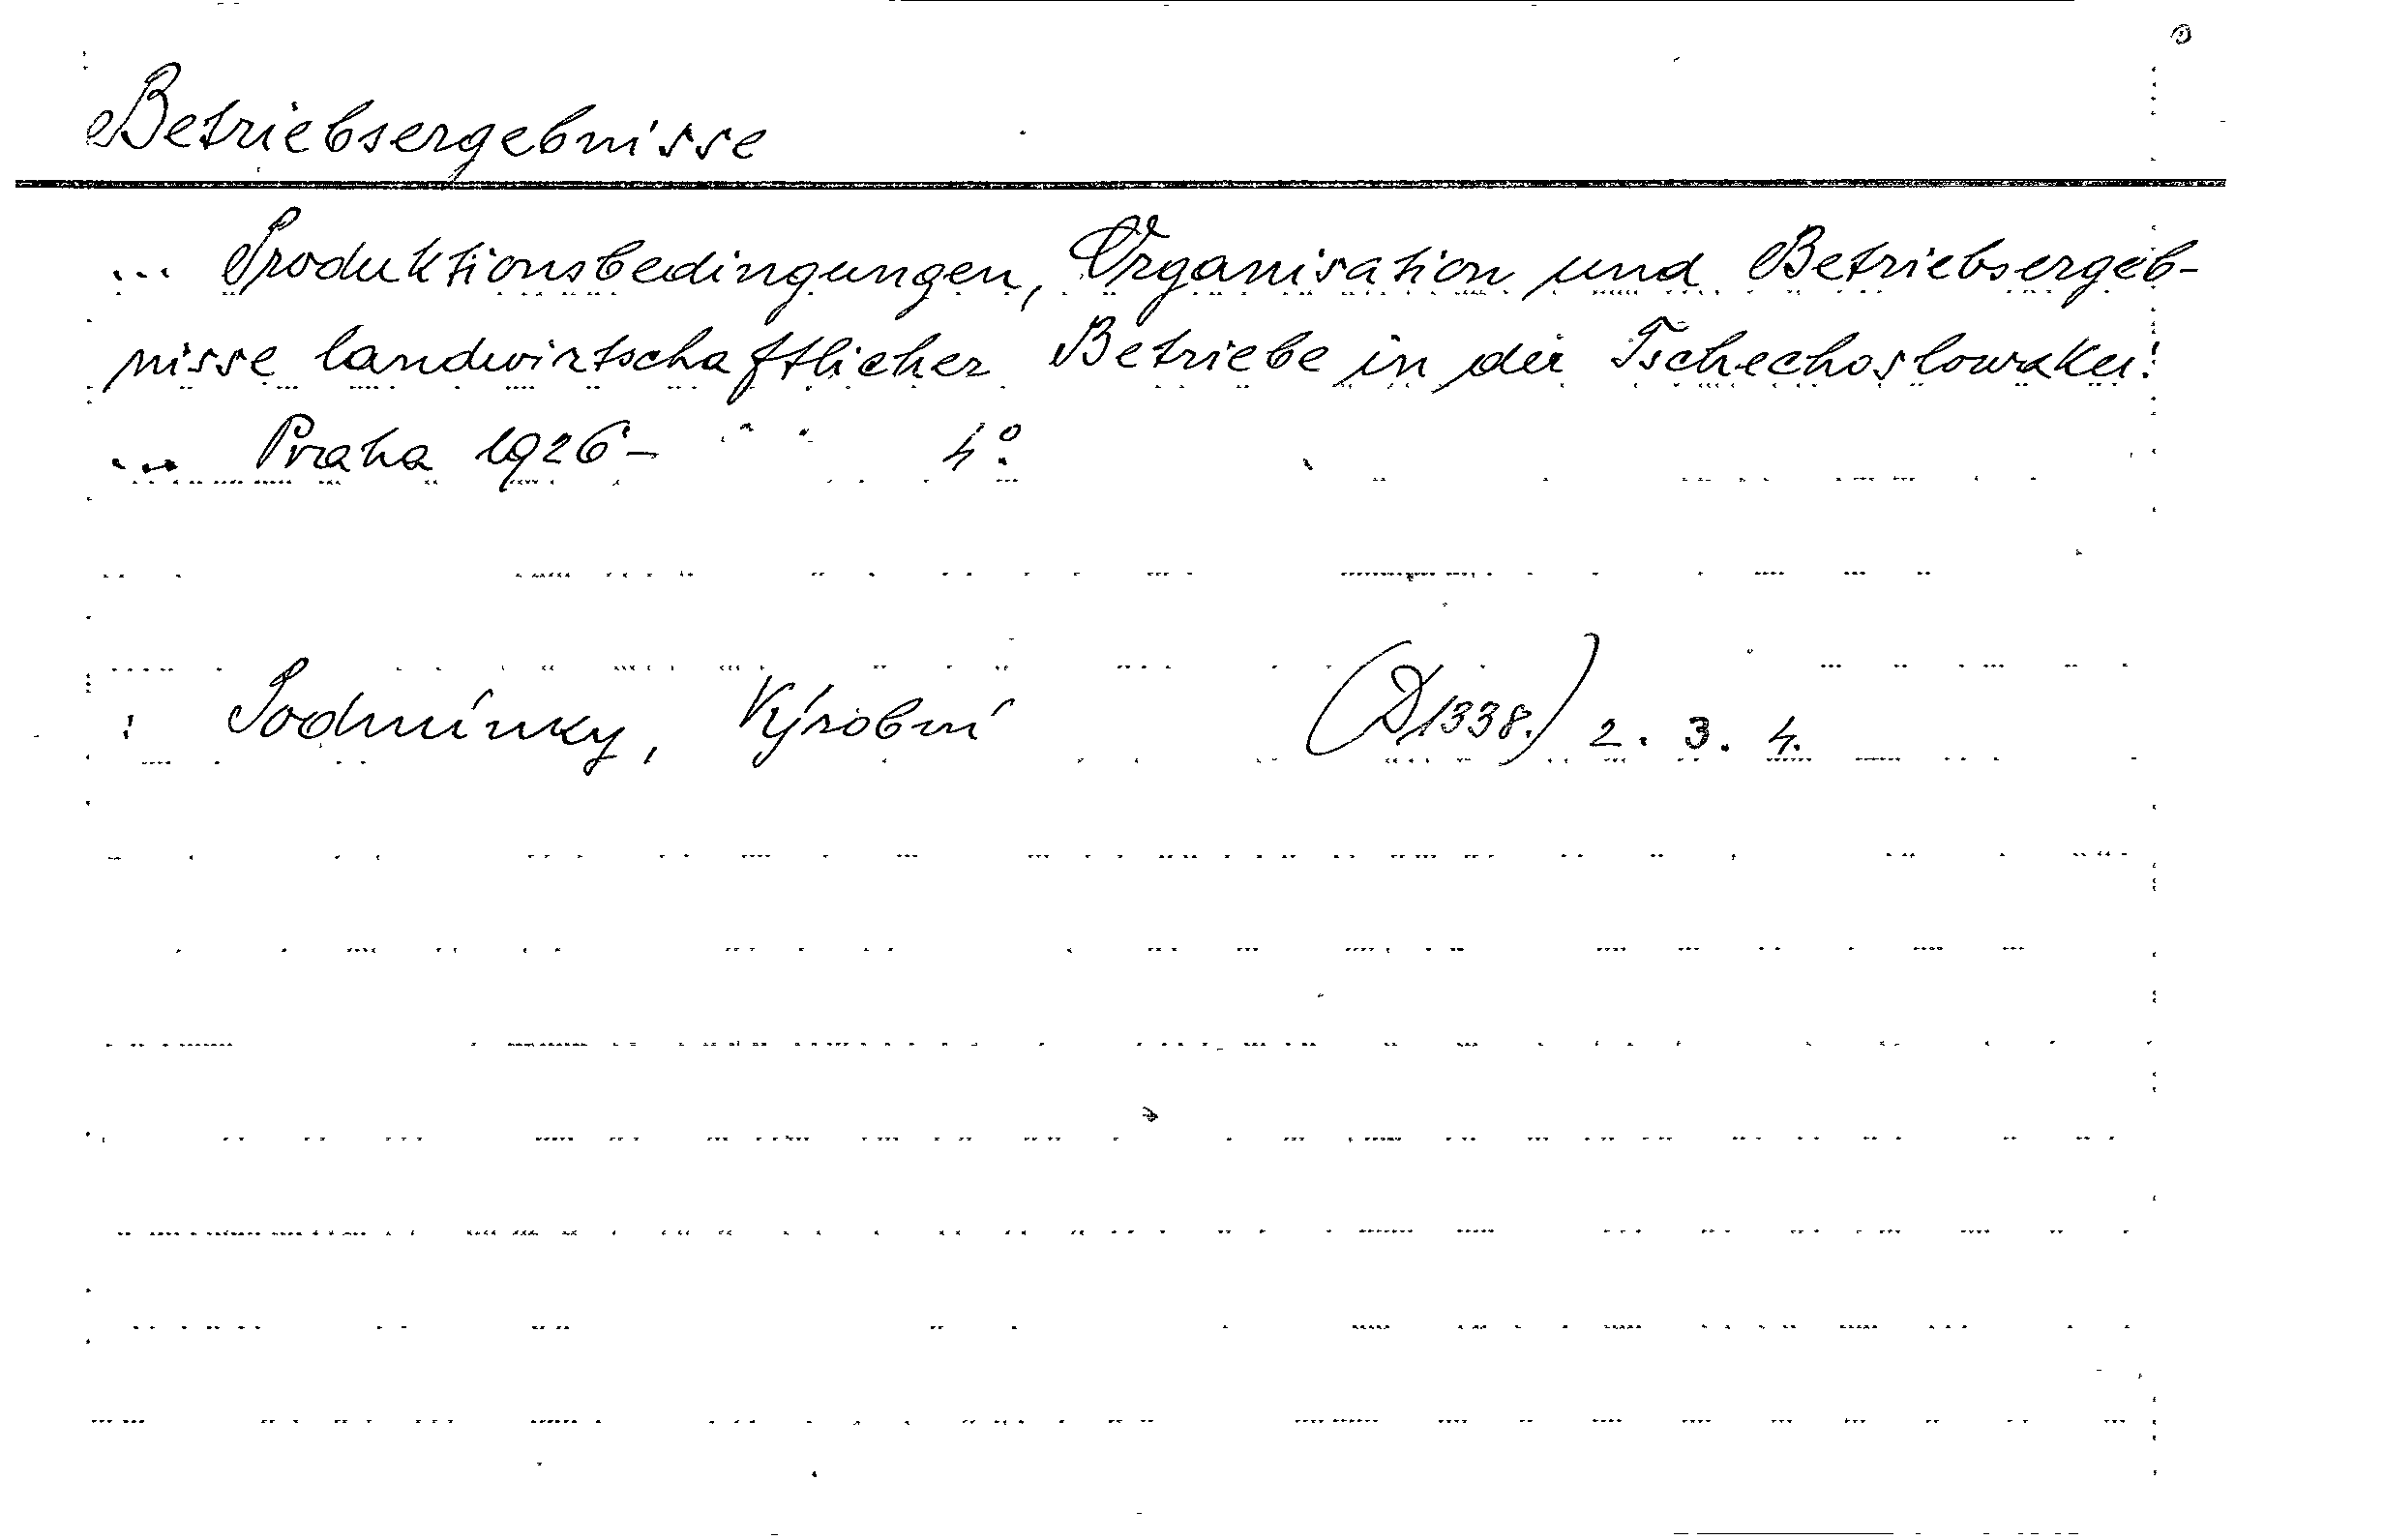 Betriebsergebnisse
... Produktionsbedingungen, Organisation und Betriebsergeb-
nisse landwirtschaftlicher Betriebe in der Tschechoslowakei.
... Praha 1926- 4°.
: Podmínky, Výrobní (D1338.) 2. 3. 4.